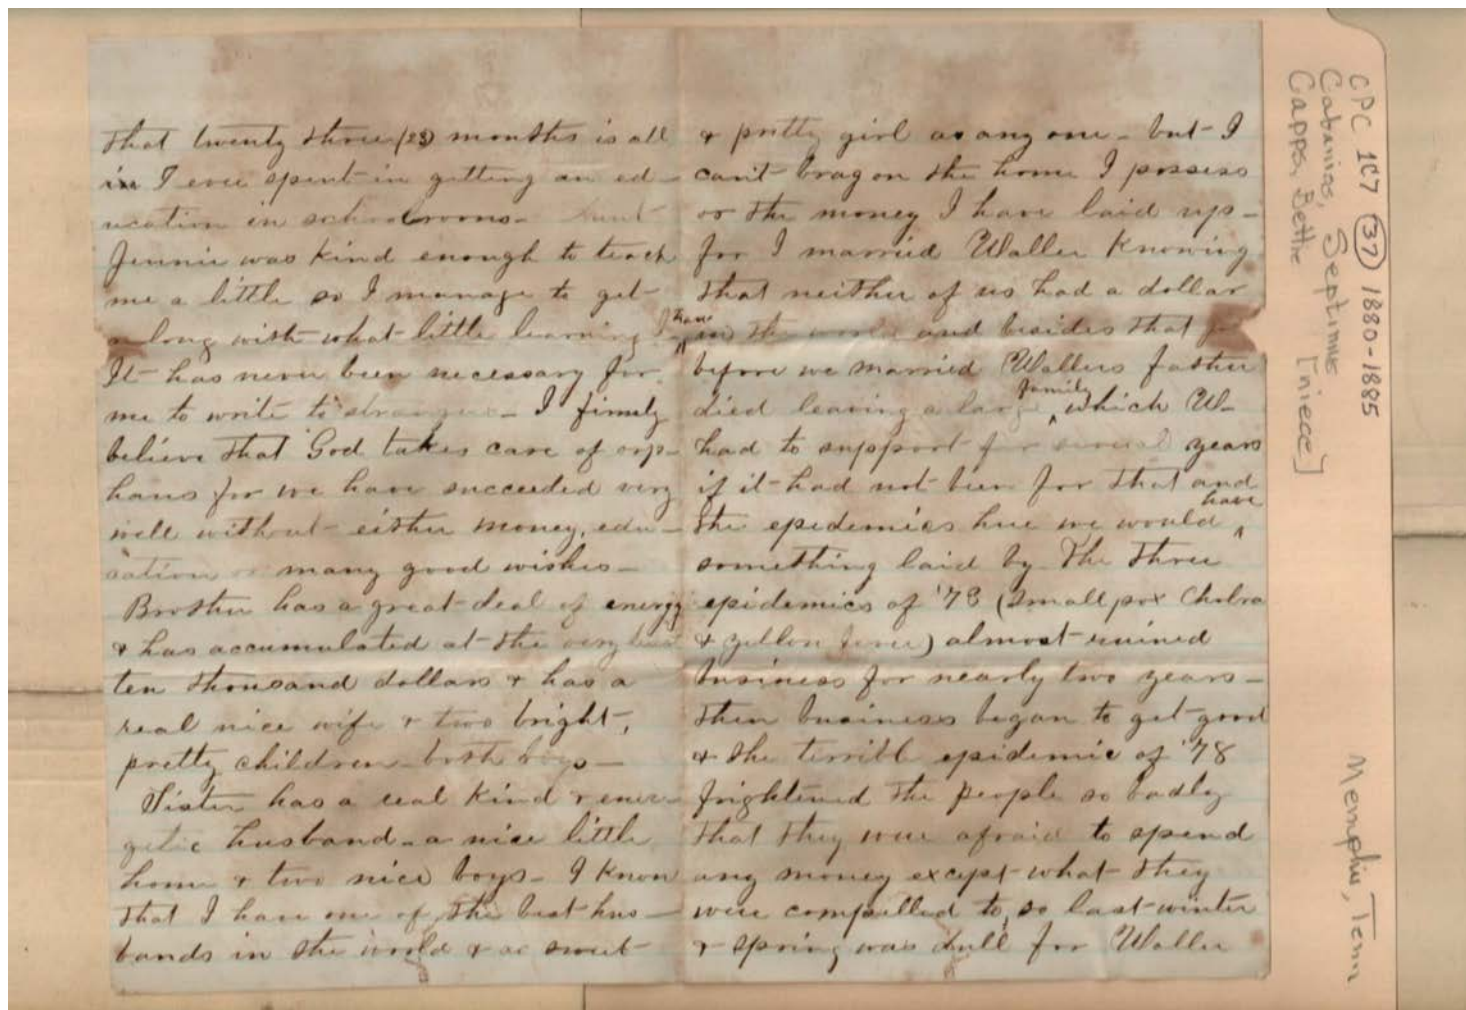 that twenty three (23) months is all
in I ever spent in getting an ed-
ucation in schoolrooms - Aunt
Jennie was kind enough to teach
me a little so I manage to get
along with what little learning I have
It has never been necessary for
me to write to strangers - I firmly
believe that God takes care of orp-
hans for we have succeeded very
well without either money, edu-
cation or many good wishes -
Brother has a great deal of energy
& has accumulated at the very least
ten thousand dollars & has a
real nice wife & two bright,
pretty children - both boys -
Sister has a real kind & ener-
getic husband - a nice little
home & two nice boys - I know
that I have one of the best hus-
bands in the world & as sweet
& pretty girl as any one - but I
can't brag on the home I possess
or the money I have laid up -
for I married Waller knowing
that neither of us had a dollar
in the world and besides that
before we married Wallers father
died leaving a large family which W-
had to support for several years
if it had not been for that and
the epidemics here we would have
something laid by. The three
epidemics of '73 (Small pox Cholra
& yellow fever) almost ruined
business for nearly two years -
then business began to get good
& the terribl epidemic of '78
frightened the people so badly
that they were afraid to spend
any money except what they
were compelled to, so last winter
& spring was dull for Waller
CPC 167 (37) 1880-1885
Cabaniss, Septimus
Capps, Bettie [niece]
Memphis, Tenn